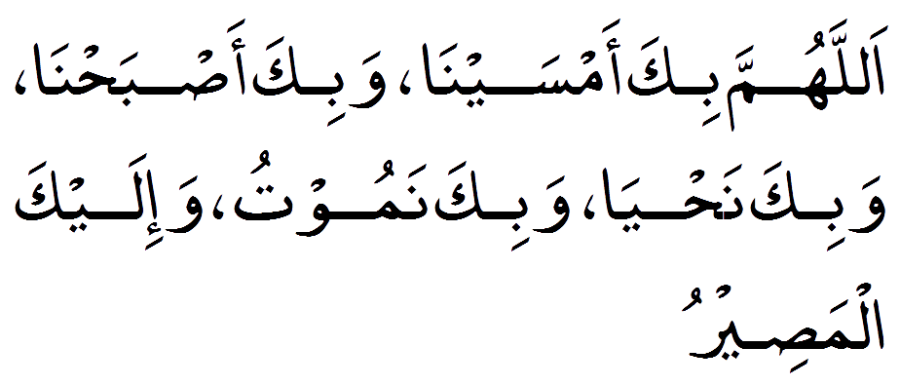 اَللَّهُمَّ بِكَ أَمْسَيْنَا، وَبِكَ أَصْبَحْنَا،
وَبِكَ نَحْيَا، وَبِكَ نَمُوْتُ، وَإِلَيْكَ
الْمَصِيْرُ